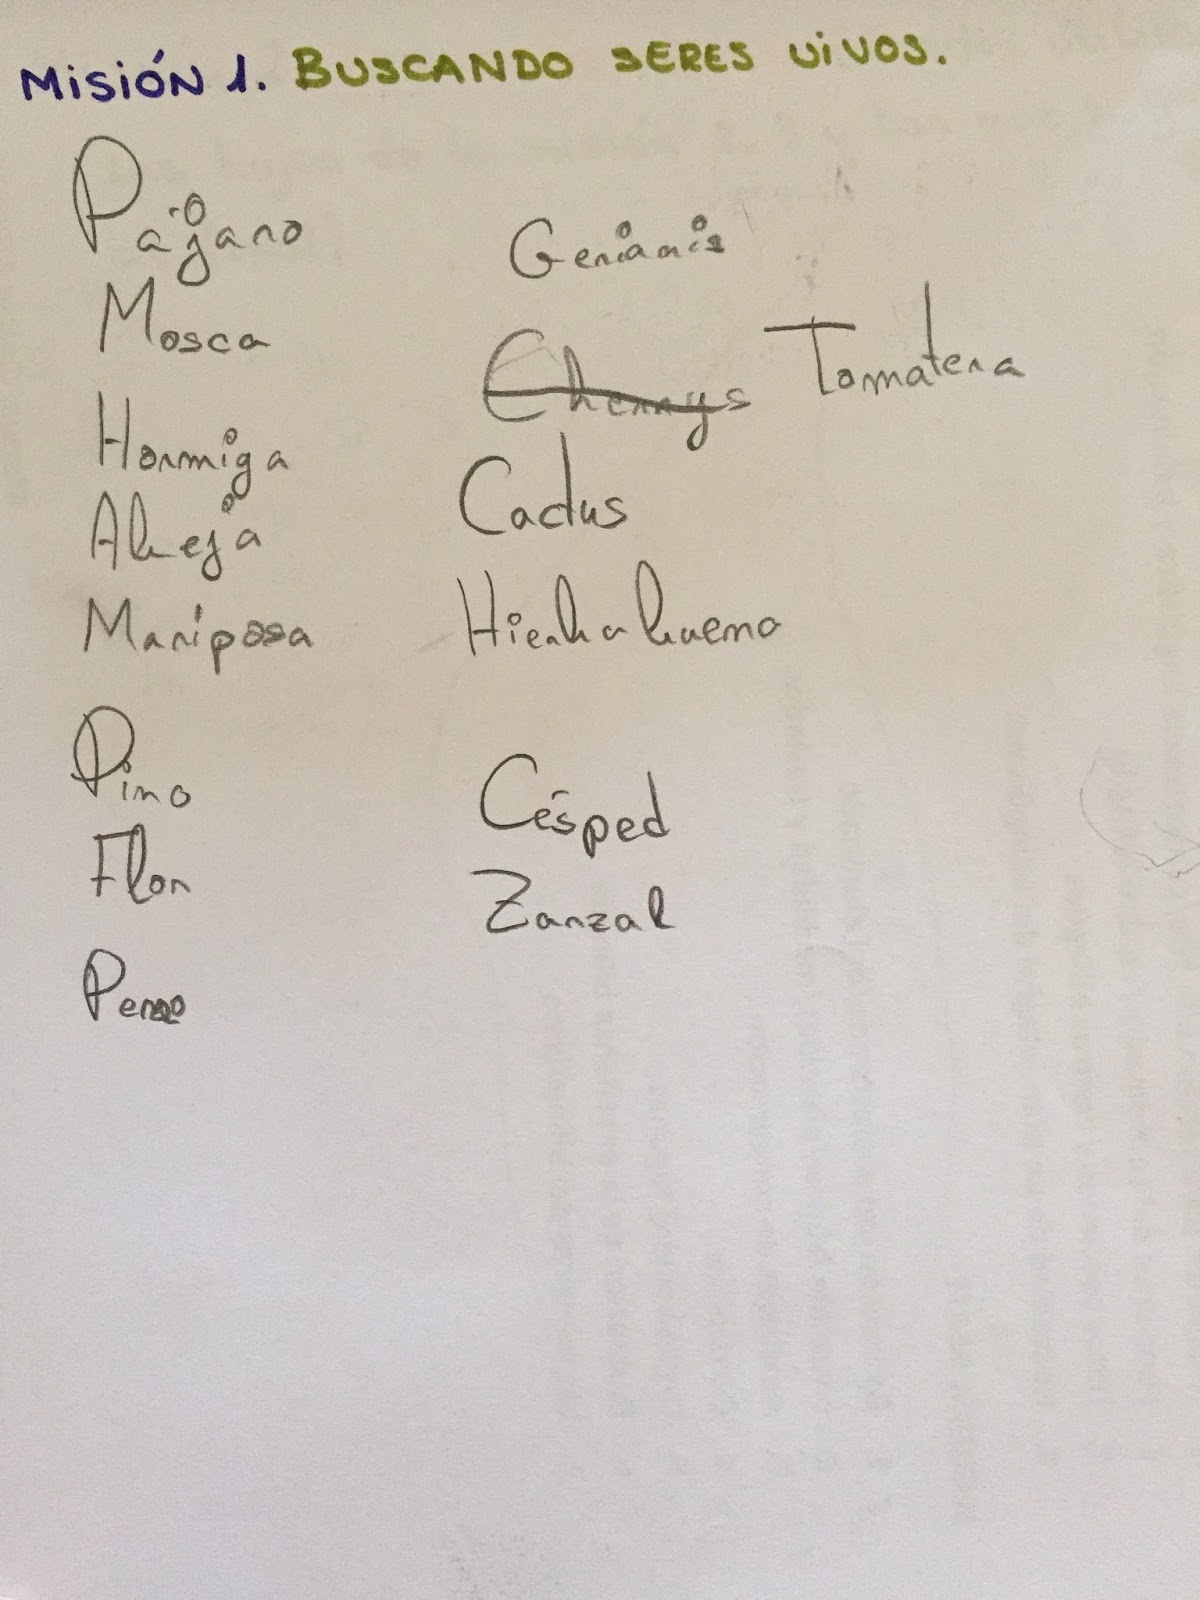 Misión 1. Buscando seres vivos.
Pájaro
Mosca
Hormiga
Abeja
Mariposa
Pino
Flor
Perro
Geranis
Cherrys Tomatera
Cactus
Hierbabuena
Césped
Zarzal